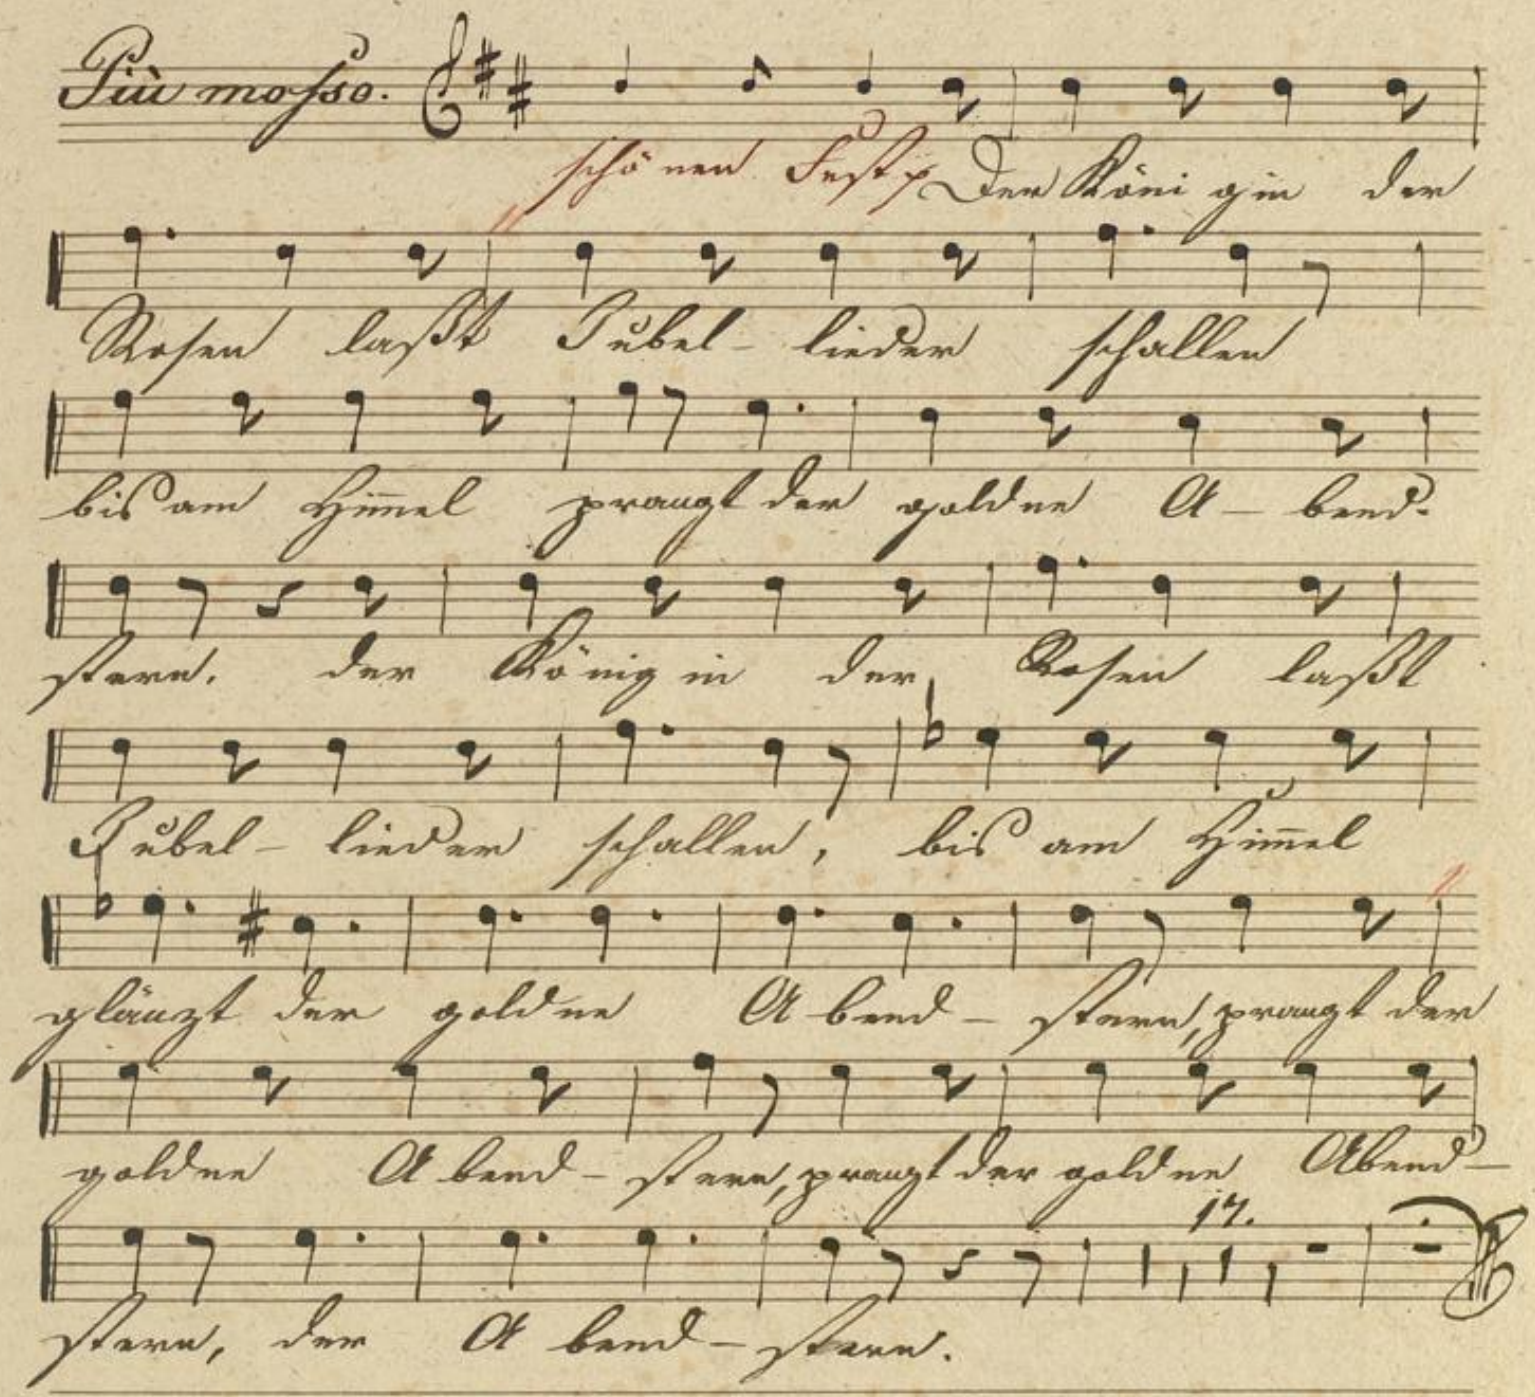 Più mosso.
schönen Fest Der Königin der
Rosen laßt Jubel- lieder schallen
bis am Him̄el prangt der goldne A- bend-
stern. der Königin der Rosen laßt
Jubel- lieder schallen, bis am Him̄el
glänzt der goldne Abend- stern, prangt der
goldne Abend- stern, prangt der goldne Abend-
17.
stern, der Abend- stern.